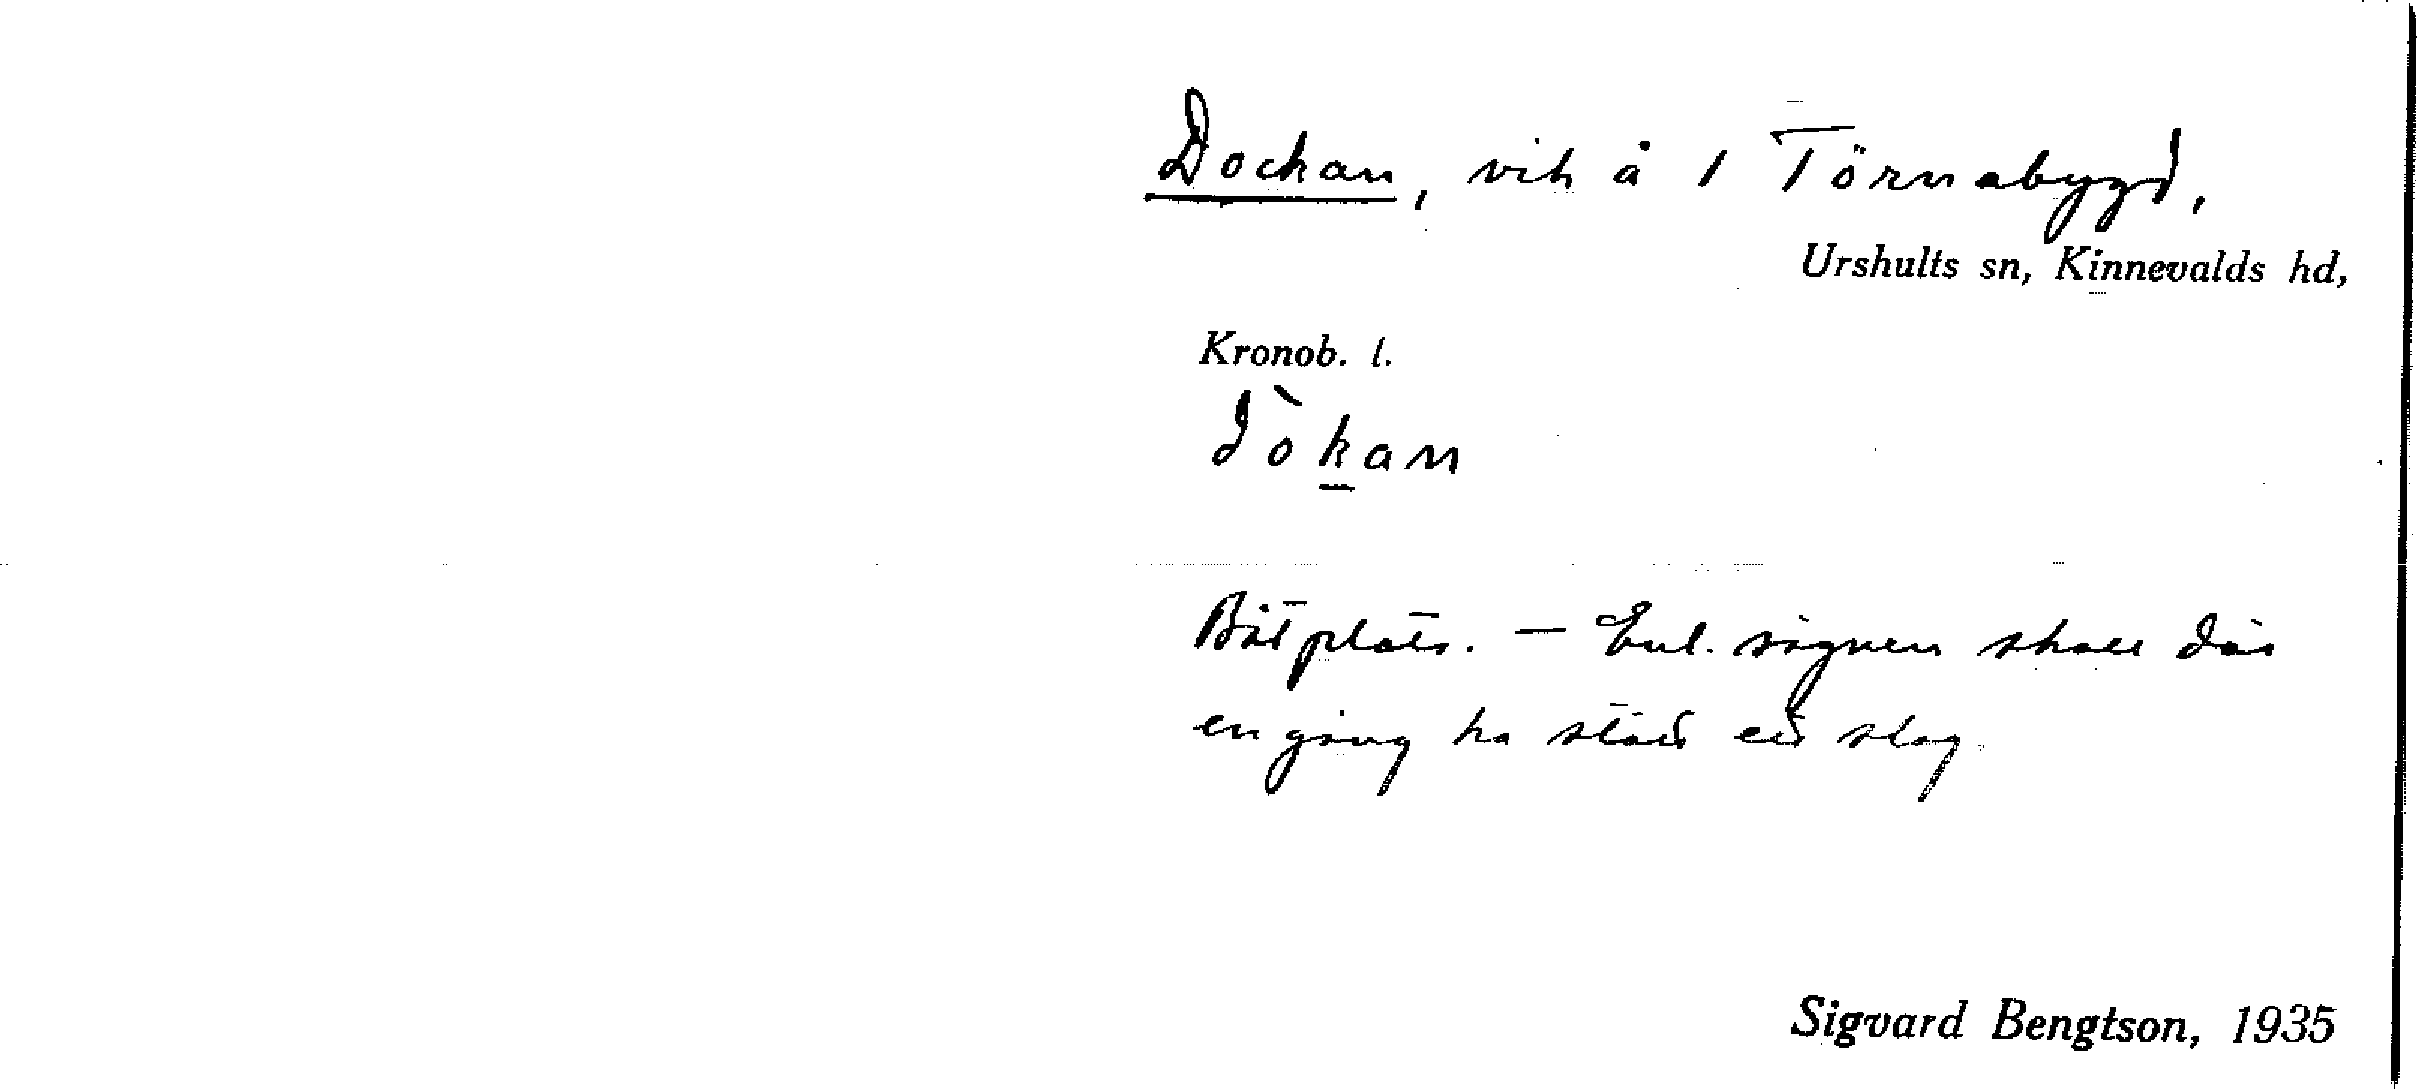 Dockan, vik å 1 Törnabygd,
Urshults sn, Kinnevalds hd,
Kronob. l.
dòkan
Båtplats. – Enl. sägnen skall där
en gång ha stått ett slag.
Sigvard Bengtson, 1935